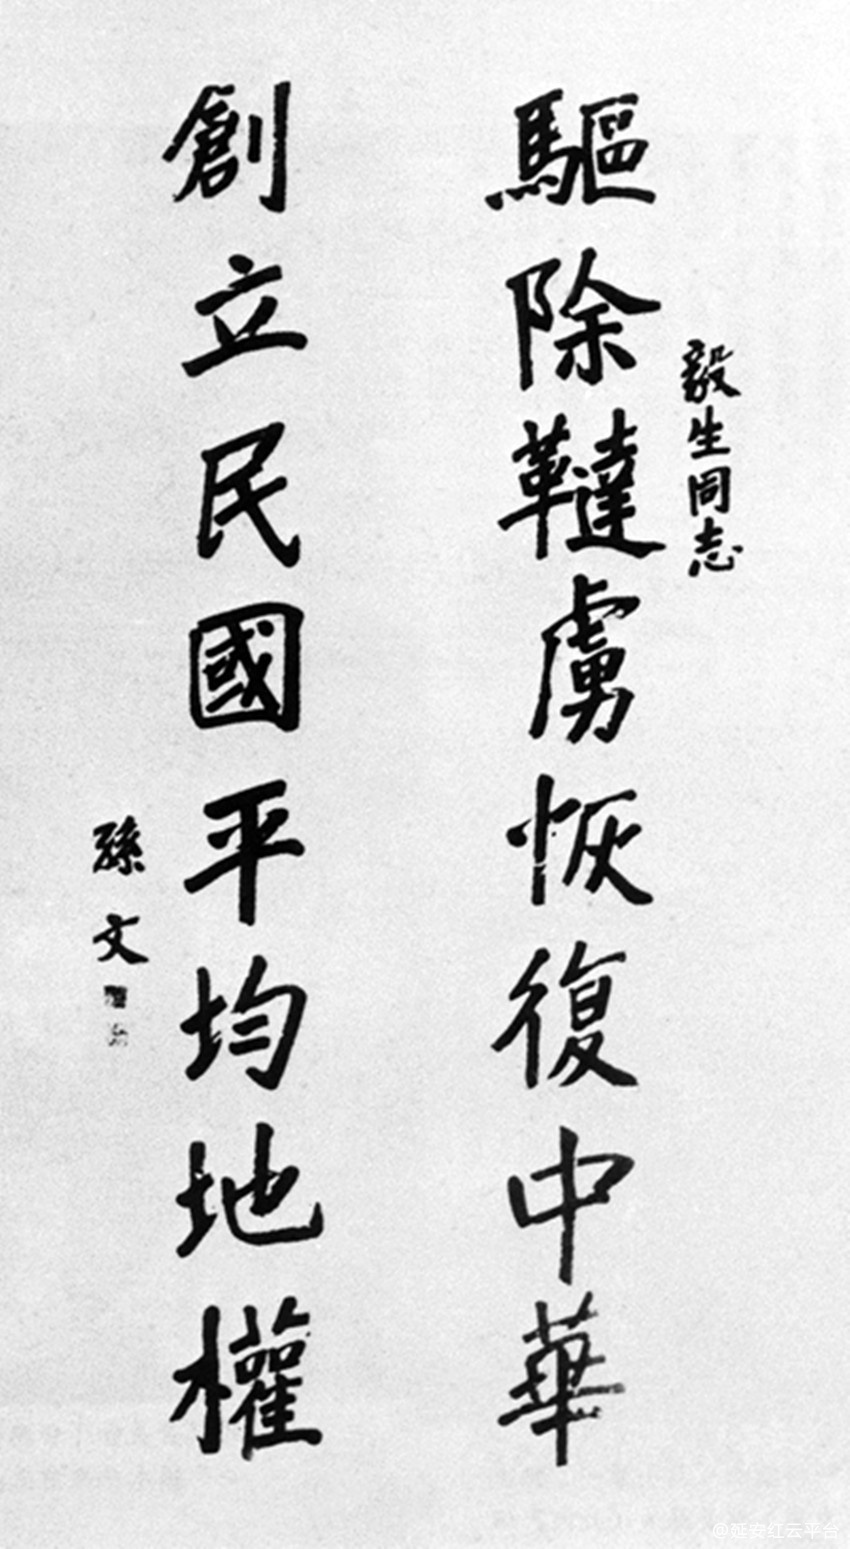 毅生同志
驅除韃虜恢復中華
創立民國平均地權
孫文
@延安红云平台